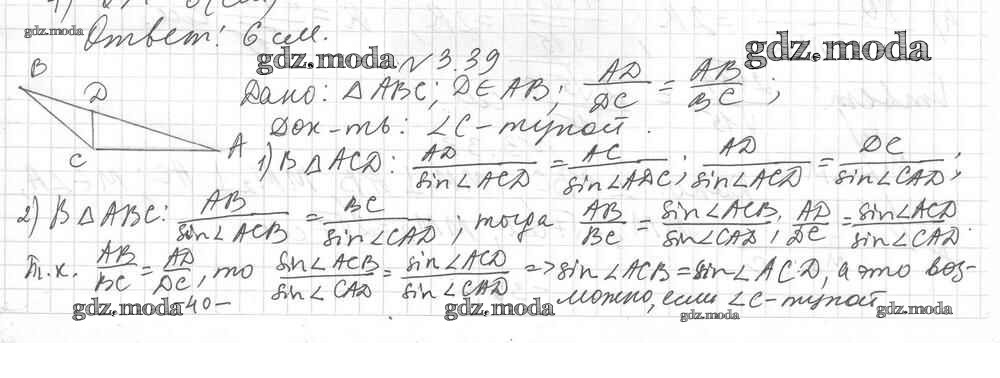 Ответ: 6 см.
gdz.moda
gdz.moda
gdz.moda
№ 3.39
Дано: △ABC; D∈AB; AD/DC = AB/BC;
Док-ть: ∠C – тупой.
B
D
C
A
1) В △ACD: AD/sin∠ACD = AC/sin∠ADC; AD/sin∠ACD = DC/sin∠CAD;
2) В △ABC: AB/sin∠ACB = BC/sin∠CAD; тогда AB/BC = sin∠ACB/sin∠CAD; AD/DC = sin∠ACD/sin∠CAD.
Т.к. AB/BC = AD/DC, то sin∠ACB/sin∠CAD = sin∠ACD/sin∠CAD => sin∠ACB = sin∠ACD, а это воз-
можно, если ∠C – тупой
-40-
gdz.moda
gdz.moda
gdz.moda
gdz.moda